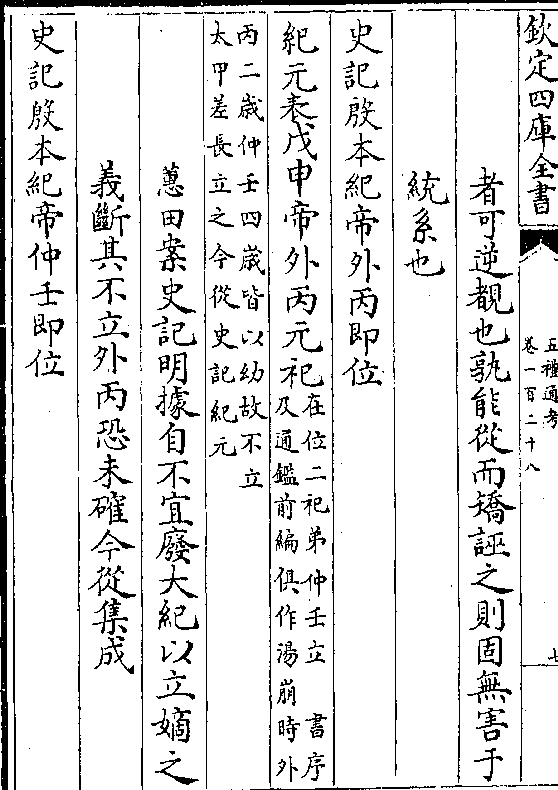 欽定四庫全書
五禮通考
卷一百二十八
七
者可逆覩也孰能從而矯誣之則固無害于
統系也
史記殷本紀帝外丙即位
紀元表戊申帝外丙元祀在位二祀弟仲壬立 書序
及通鑑前編俱作湯崩時外
丙二歲仲壬四歲皆以幼故不立
太甲差長立之今從史記紀元
蕙田案史記明據自不宜廢大紀以立嫡之
義斷其不立外丙恐未確今從集成
史記殷本紀帝仲壬即位